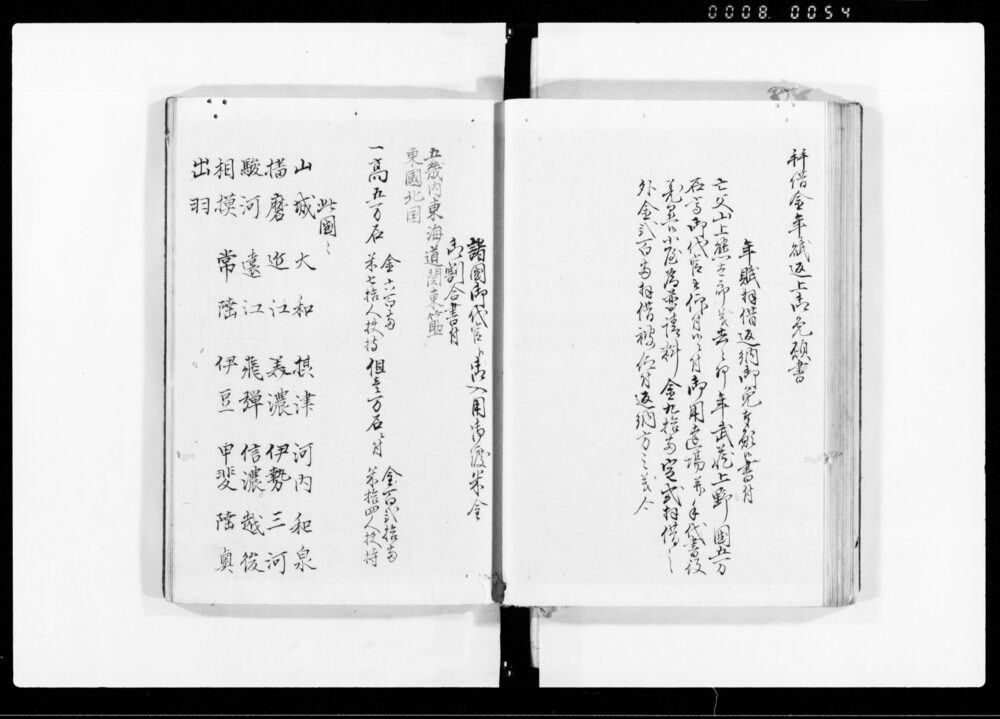 0008. 0054
拝借金年賦返上御免願書
年賦拝借返納御免奉願候書付
亡父山上熊太郎義去ル卯年武蔵上野国五万
石高御代官被仰付候ニ付御用達場并手代書役
宛金九拾両定式拝借之
外金弐百両拝借被仰付返納方之義今
諸國御代官御入用御渡米金
御割合書付
五畿内東海道関東筋
東國北国
一高五万石 金六百両 米七拾人扶持 但壱万石ニ付 金百弐拾両 米拾四人扶持
此國ミ
山城 大和 摂津 河内 和泉
播磨 近江 美濃 伊勢 三河
駿河 遠江 飛騨 信濃 越後
相摸 常陸 伊豆 甲斐 陸奥
出羽